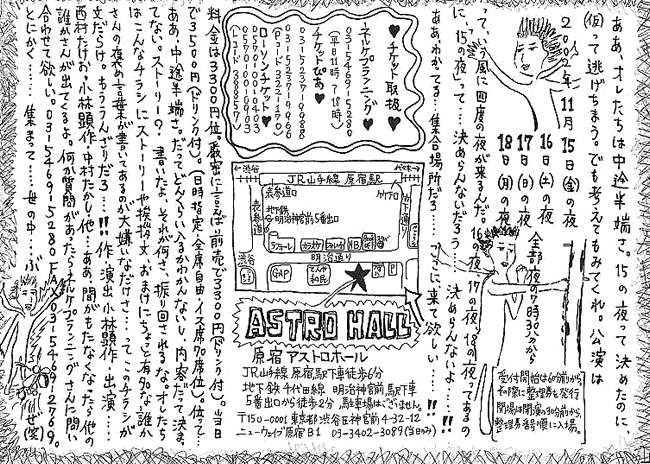 ああ、オレたちは中途半端さ。15の夜って決めたのに、
(仮)って逃げちまう。でも考えてもみてくれ。公演は
2002年11月15日(金)の夜
16日(土)の夜
17日(日)の夜
18日(月)の夜
全部夜の7時30分から
受付開始は60分前から
その際に整理券を発行
開場は開演の30分前から
整理券番号順に入場。
って、今風に四度の夜が来るんだ。16の夜、17の夜、18の夜ってあるの
に、「15の夜」って…決めらんないだろう…決めらんないよ…!!
ああわかってる…集合場所だろう…ってに来て欲しい……!!
♥チケット取扱♥
ネルケプランニング♥
03-5469-5280
(平日11時〜18時)
チケットぴあ♥
03-5237-9988
03-5237-9966
(Pコード352-170)
ローソンチケット♥
0570-00-0403
0570-06-3003
(Lコード38857)
←渋谷
代々木→
JR山手線 原宿駅
表参道口
竹下口
地下鉄
明治神宮前5番出口
表参道
竹下通り
ラフォーレ
明治通り
渋谷
GAP
てんや
和民
P
ASTRO HALL
原宿アストロホール
JR山手線原宿駅下車徒歩6分
地下鉄千代田線 明治神宮前駅下車
5番出口から徒歩2分 駐車場はございません。
〒150-0001 東京都渋谷区神宮前4-32-12
ニューウェイブ原宿B1 03-3402-3089(当日のみ)
料金は3300円位。厳密に言えば前売で3300円(ドリンク付)。当日
で3500円(ドリンク付)。(日時指定・全席自由・イス席70席位)。位って…
ああ、中途半端さ。だってどんくらい入るかわかんないし、内容だって決ま
てない。ストーリー?書いたよ、それが何さ、振り回されるなよ。オレたち
はこんなチラシにストーリーや挨拶文、おまけにちょと有名な誰か
さんの褒め言葉が書いてあるのが大嫌いなだけさ…ってこのチラシが
文だらけ。もううんざりだろ…!!作・演出 小林顕作・出演…
西村たけお・小林顕作・中村たかし他…ああ、間がもたなくなったら他の
誰かさんが出てくるよ。何か質問があったらネルケプランニングさんに問い
合わせて欲しい。03-5469-5280 FAX03-5469-2769。
とにかく……集まって……世の中…ぶ
せ(笑)